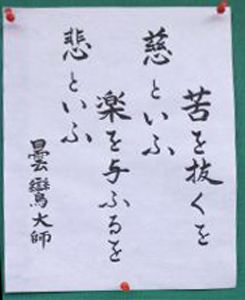 苦を抜くを
慈といふ
楽を与ふるを
悲といふ
曇鸞大師